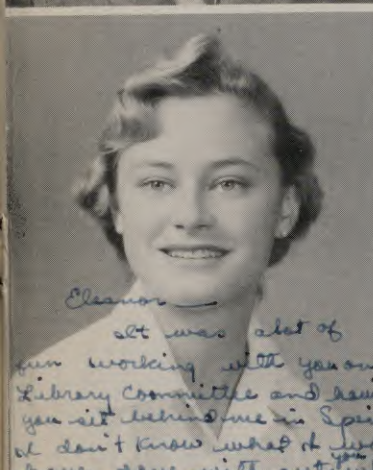 Eleanor —
It was a lot of
fun working with you on
Library Committee and have
you sit behind me in Spe
I don't know what I wo
have done without you